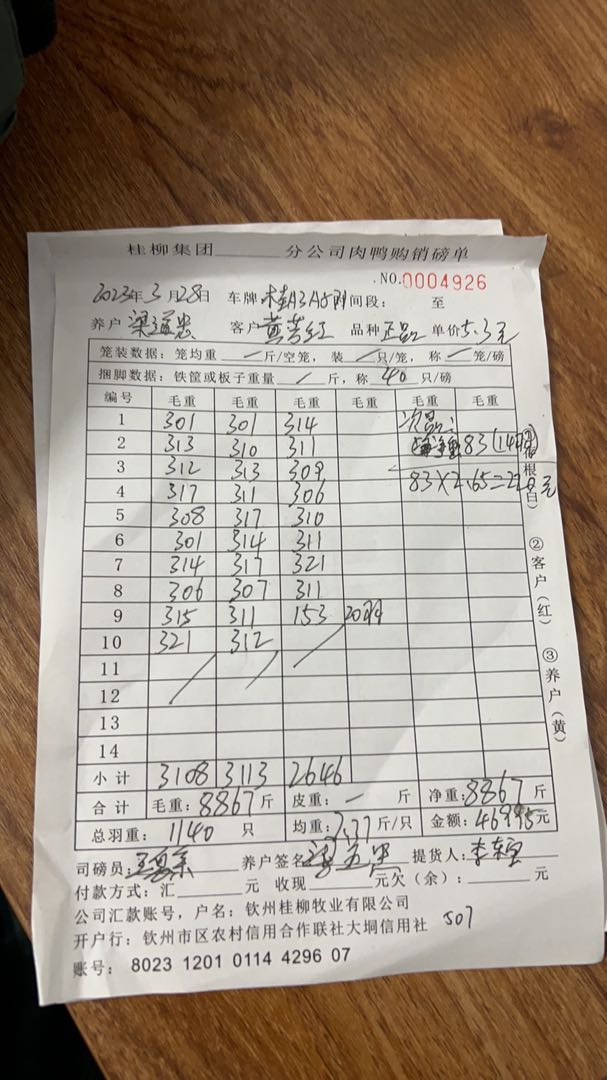 桂柳集团______分公司肉鸭购销磅单
NO.0004926
2023年3月28日 车牌 时间段: 至
养户 客户 黄 红 品种 正品 单价5.3元
笼装数据: 笼均重 — 斤/空笼, 装 — 只/笼, 称 — 笼/磅
捆脚数据: 铁筐或板子重量 / 斤, 称 40 只/磅
编号 毛重 毛重 毛重 毛重 毛重 毛重
1 301 301 314 次品:
2 313 310 311 83(14
3 312 313 309
4 317 311 306 83×2.65=220元
5 308 317 310
6 301 314 311
7 314 317 321
8 306 307 311
9 315 311 153 20只
10 321 312
11
12
13
14
小计 3108 3113 2646
合计 毛重: 8867斤 皮重: — 斤 净重: 8867斤
总羽重: 1140 只 均重: 7.77斤/只 金额: 46995元
司磅员: 养户签名 提货人:
付款方式: 汇______元 收现______元欠(余): ______元
公司汇款账号, 户名: 钦州桂柳牧业有限公司
开户行: 钦州市区农村信用合作联社大垌信用社 507
账号: 8023 1201 0114 4296 07
根(白)
②客户(红)
③养户(黄)